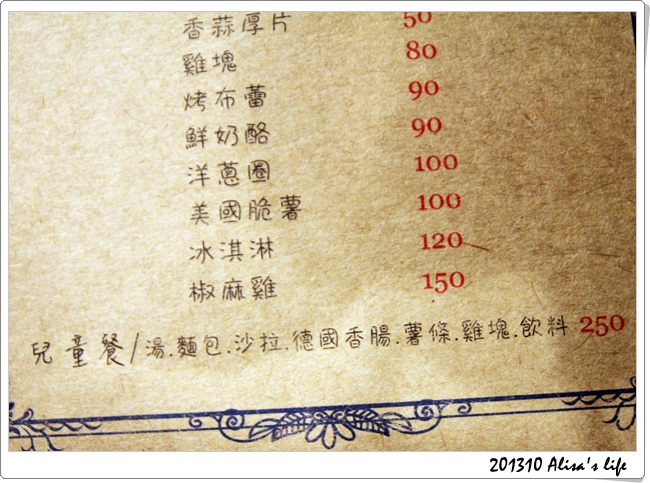 香蒜厚片 50
雞塊 80
烤布蕾 90
鮮奶酪 90
洋蔥圈 100
美國脆薯 100
冰淇淋 120
椒麻雞 150
兒童餐/湯.麵包.沙拉.德國香腸.薯條.雞塊.飲料 250
201310 Alisa's life